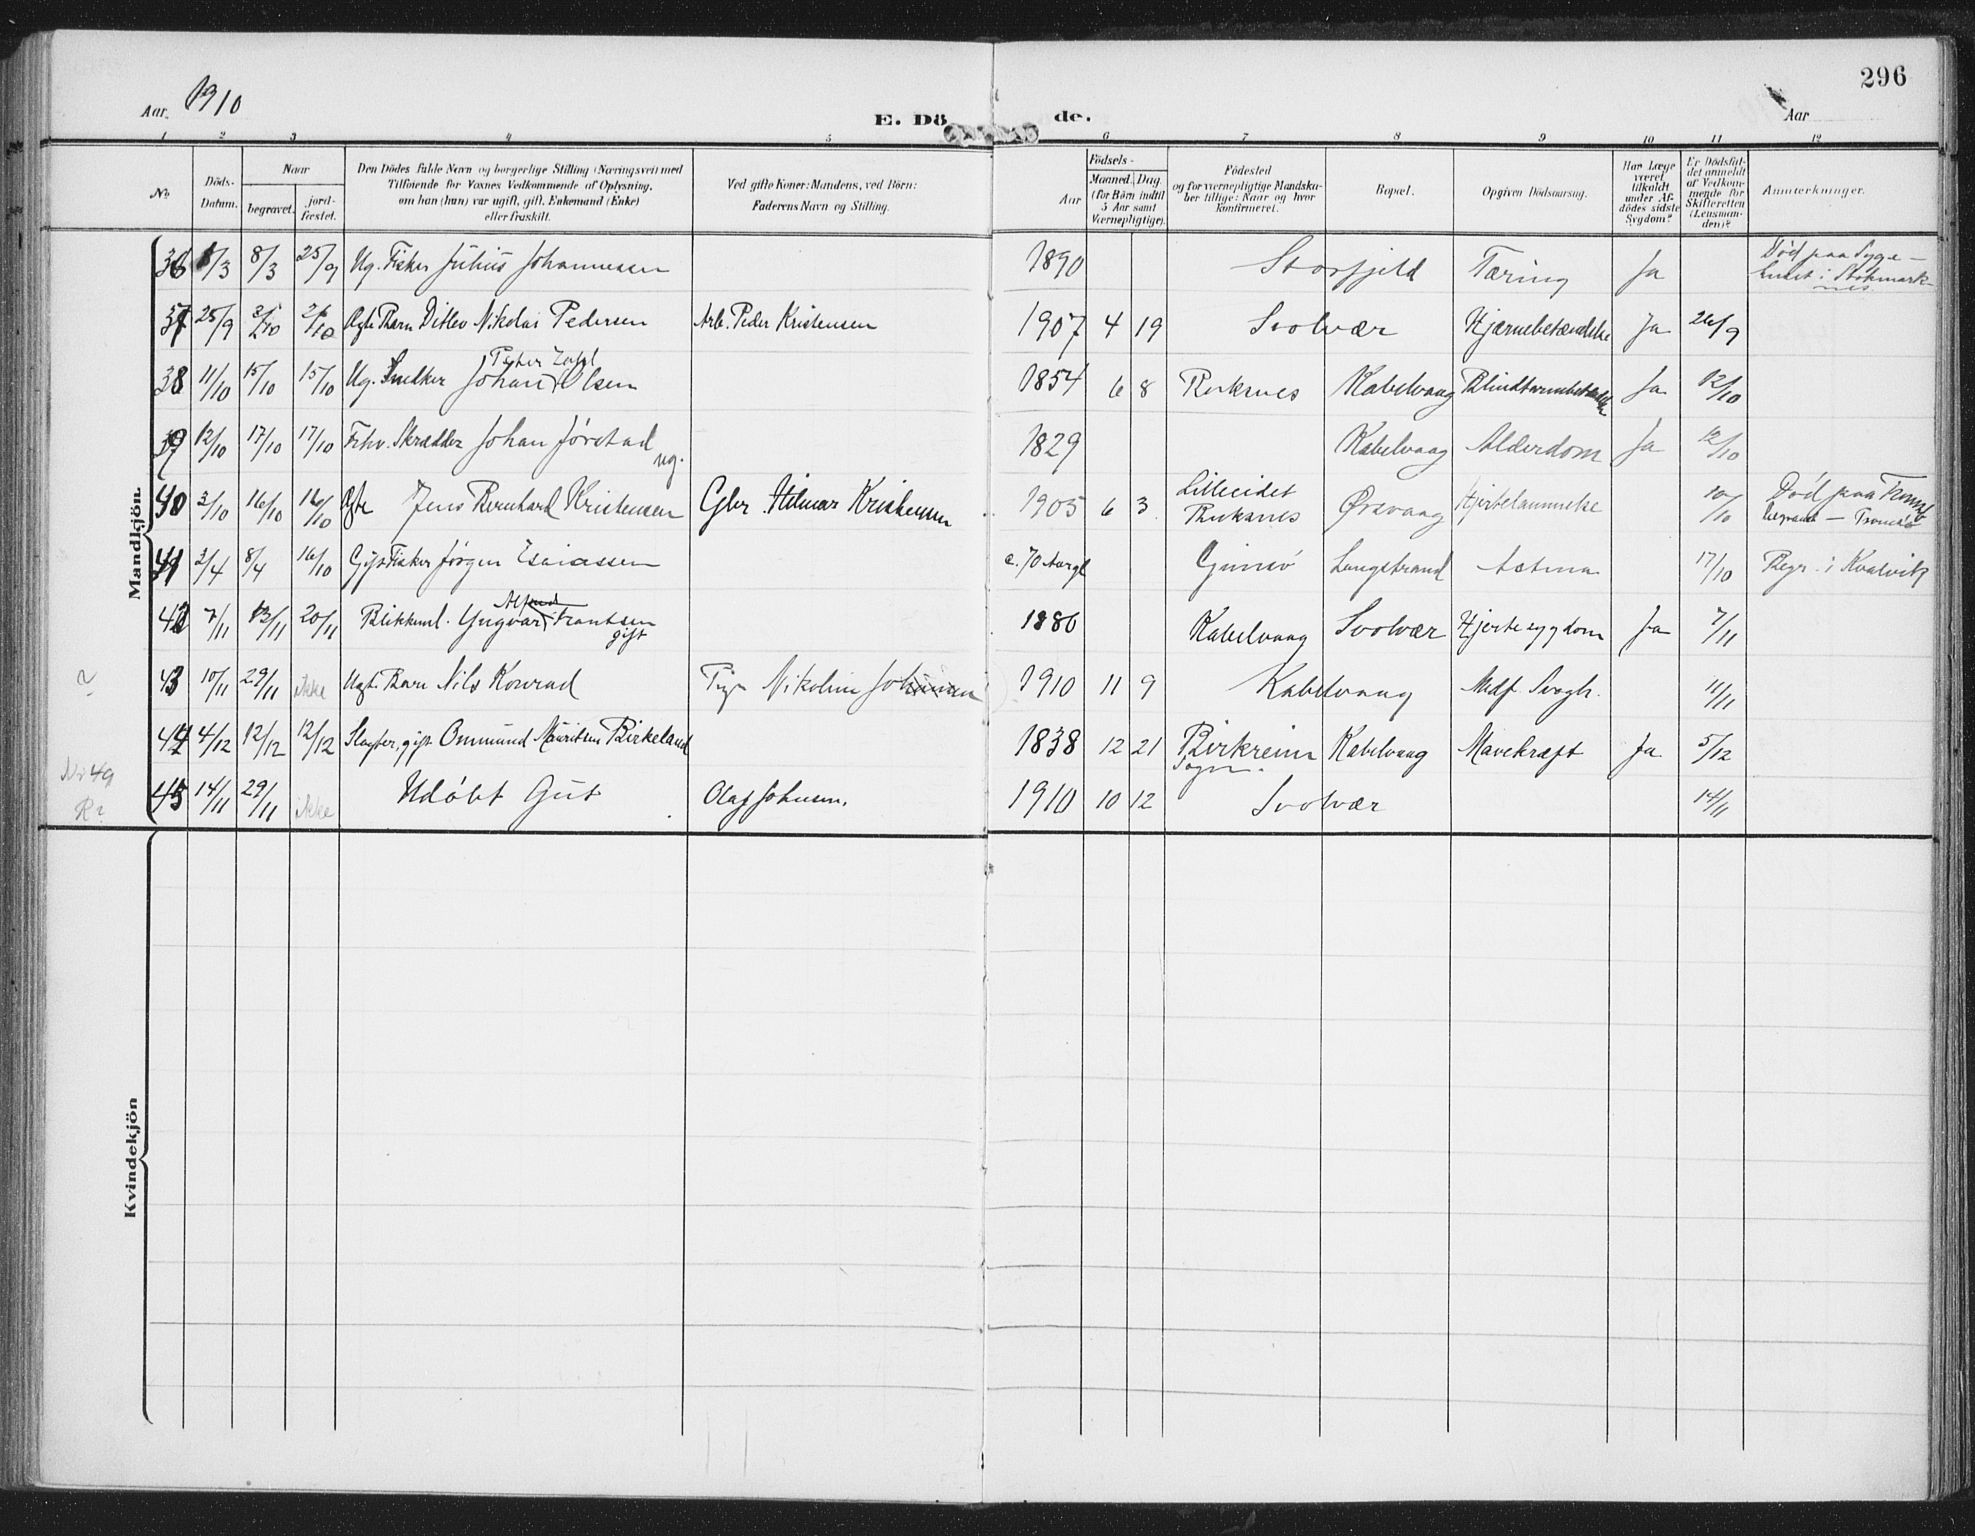 296
Aar 1910
E. Dö
de.
Aar
1 2 3 4 5 6 7 8 9 10 11 12
No
Döds-Datum.
Naar
begravet.
jord-fæstet.
Den Dödes fulde Navn og borgerlige Stilling (Næringsvei) med
Tilföiende for Voxnes Vedkommende af Oplysning,
om han (hun) var ugift, gift, Enkemand (Enke)
eller fraskilt.
Ved gifte Koner: Mandens, ved Börn:
Faderens Navn og Stilling.
Födsels-
Aar
Maaned. Dag
(for Börn indtil
5 Aar samt
Værnepligtige).
Födested
og for værnepligtige Mandska-
ber tillige: Naar og hvor
konfirmeret.
Bopæl.
Opgiven Dödsaarsag.
Har Læge
været
tilkaldt
under Af-
dödes sidste
Sygdom?
Er Dödsfal-
det anmeldt
af Vedkom-
mende for
Skifteretten
(Lensman-
den)?
Anmærkninger.
Mandkjön.
36 8/3 8/3 25/9 Ug. Fisker Julius Johannessen 1890 Storfjeld Tæring Ja Død paa Syge-
huset i Stokmark-
nes.
37 25/9 2/10 2/10 Ægte Barn Ditlev Nikolai Pedersen Arb. Peder Kristensen 1907 4 19 Svolvær Hjærnebetændelse Ja 26/9
38 11/10 15/10 15/10 Ug. Snedker Johan Olsen 1854 6 8 Kabelvaag Blindtarmbetændelse Ja 12/10
39 12/10 17/10 17/10 Fhv. Skrædder Johan Jørstad ug. 1829 Kabelvaag Alderdom Ja 12/10
40 3/10 16/10 16/10 Ægte Jens Bernhard Kristensen Gbr. Hilmar Kristensen 1905 6 3 Lilleeidet Ørsvaag Hjertelammelse 10/10 Død paa Tromsø
begravet — Tromsø
41 3/4 8/4 16/10 Gift Fisker Jørgen Esaiassen c. 70 Aar gl Gimsø Langstrand Astma 17/10 Begr. i Kvalvik
42 7/11 13/11 20/11 Blikkensl. Yngvar Alfred Frantsen gift 1880 Kabelvaag Svolvær Hjertesygdom Ja 7/11
43 10/11 29/11 ikke Uægte Barn Nils Konrad Pige Nikoline Johansen 1910 11 9 Kabelvaag Medf. Svagh. 11/11
44 4/12 12/12 12/12 Slagter, gift Ommund Mauritsen Birkeland 1838 12 21 Birkreim Sogn. Kabelvaag Mavekræft Ja 5/12
Nr 49
R?
45 14/11 29/11 ikke Udøbt Gut Olaf Johnsen. 1910 10 12 Svolvær 14/11
Kvindekjön